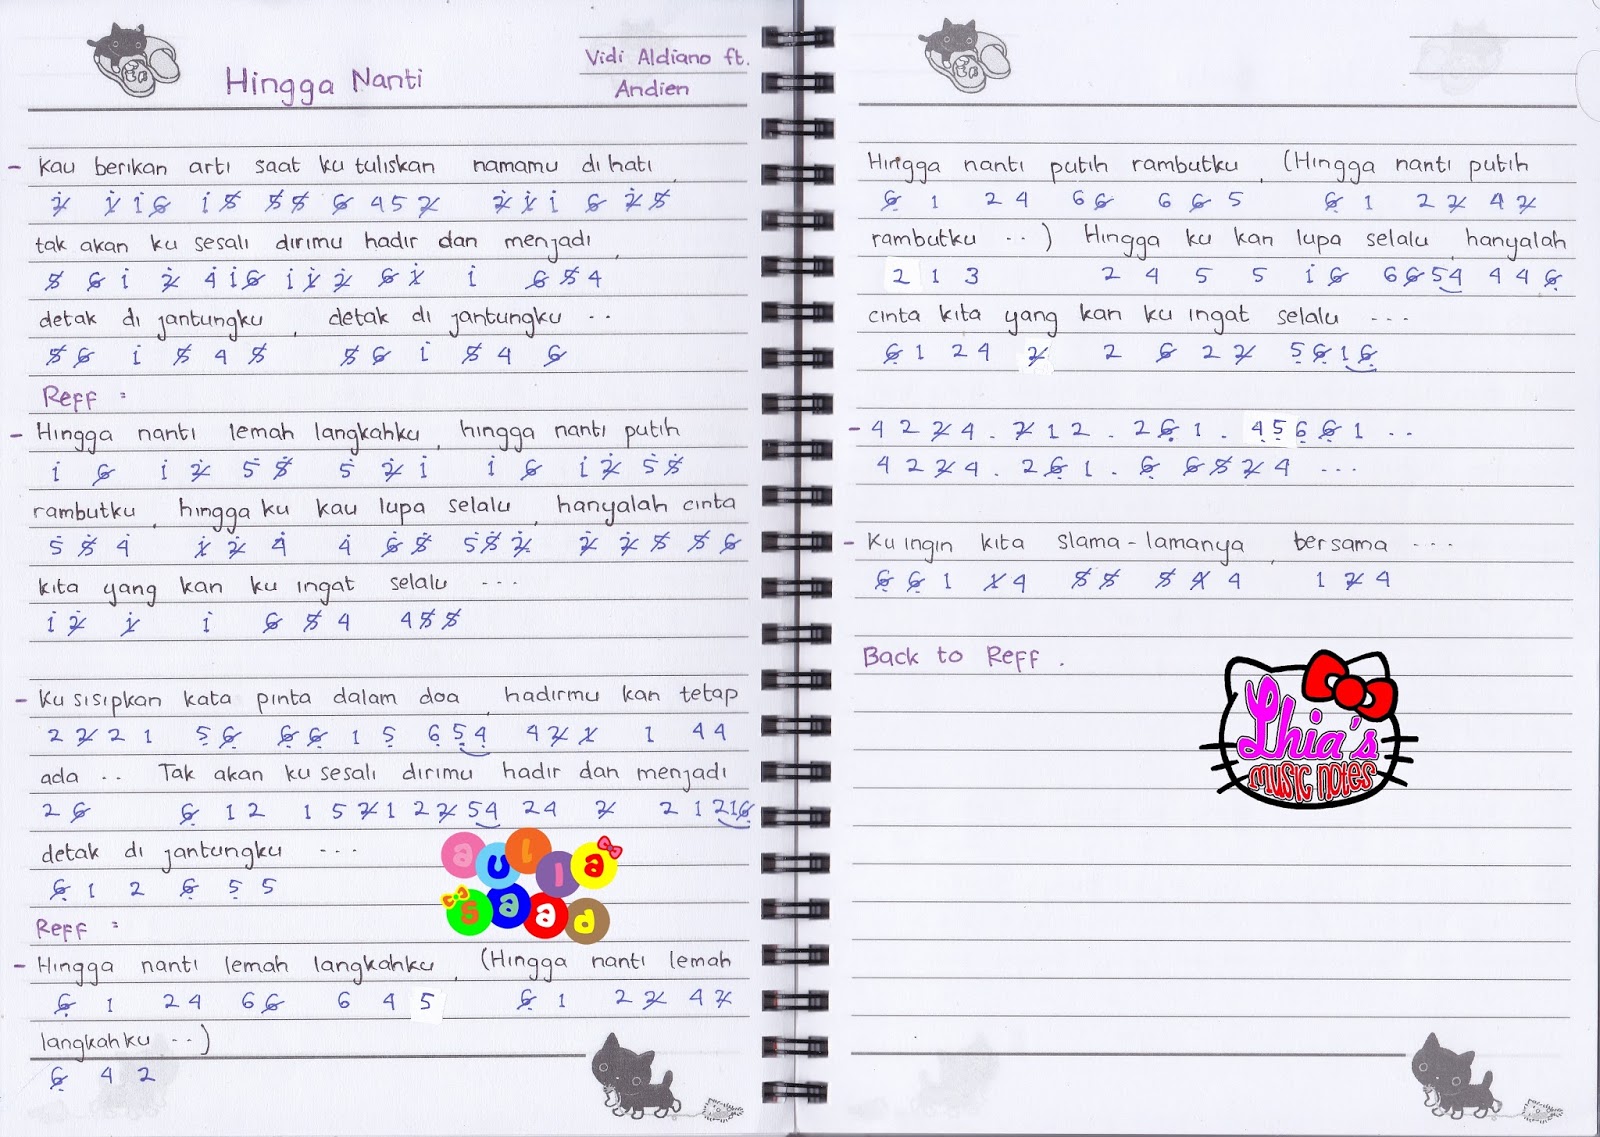 Hingga Nanti
Vidi Aldiano ft.
Andien
- Kau berikan arti saat ku tuliskan namamu di hati,
2̸̇ 1̸̇ i 6̸ i 5̸ 5̸ 5̸ 6̸ 4 5 2̸ 2̸̇ 1̸̇ i 6̸ 2̸̇ 5̸
tak akan ku sesali dirimu hadir dan menjadi,
5̸ 6̸ i 2̸̇ 4̇ i 6̸ i 1̸̇ 2̸̇ 6̸ 1̸̇ i 6̸ 5̸ 4
detak di jantungku, detak di jantungku ..
5̸ 6̸ i 5̸ 4 5̸ 5̸ 6̸ i 5̸ 4 6̸
Reff :
- Hingga nanti lemah langkahku, hingga nanti putih
i 6̸ i 2̸̇ 5̇ 5̸̇ 5̇ 2̸̇ i i 6̸ i 2̸̇ 5̇ 5̸̇
rambutku, hingga ku kau lupa selalu, hanyalah cinta
5̇ 5̸̇ 4̇ 1̸̇ 2̸̇ 4̇ 4̇ 6̸̇ 5̸̇ 5̇ 5̸̇ 2̸̇ 2̸̇ 2̸̇ 5̸ 5̸ 6̸
kita yang kan ku ingat selalu ...
i 2̸̇ 1̸̇ i 6̸ 5̸ 4 4 5̸ 5̸
- Ku sisipkan kata pinta dalam doa, hadirmu kan tetap
2 2̸ 2 1 5̣ 6̸̣ 6̸̣ 6̸̣ 1 5̣ 6̣ 5̣ 4̣ 4 2̸ 1̸ 1 4 4
ada .. Tak akan ku sesali dirimu hadir dan menjadi
2 6̸ 6̸̣ 1 2 1 5 2̸ 1 2 2̸ 5 4 2 4 2̸ 2 1 2 1 6̸̣
detak di jantungku ...
6̸̣ 1 2 6̸̣ 5̣ 5
Reff :
- Hingga nanti lemah langkahku, (Hingga nanti lemah
6̸̣ 1 2 4 6 6̸ 6 4 5 6̸̣ 1 2 2̸ 4 2̸
langkahku ..)
6̸̣ 4 2
aulia
saad
Hingga nanti putih rambutku, (Hingga nanti putih
6̸̣ 1 2 4 6 6̸ 6 6̸ 5 6̸̣ 1 2 2̸ 4 2̸
rambutku ..) Hingga ku kan lupa selalu, hanyalah
2 1 3 2 4 5 5 i 6̸ 6 6̸ 5 4 4 4 6̸̣
cinta kita yang kan ku ingat selalu ...
6̸̣ 1 2 4 2̸ 2 6̸ 2 2̸ 5̣ 6̸̣ 1 6̸̣
- 4 2 2̸ 4 . 2̸ 1 2 . 2 6̸̣ 1 . 4̣ 5̣ 6̣ 6̸̣ 1 ..
4 2 2̸ 4 . 2 6̸̣ 1 . 6̸̣ 6̸ 5̸ 2̸ 4 ...
- Ku ingin kita slama-lamanya, bersama ...
6̸̣ 6̸̣ 1 1̸ 4 5̸ 5̸ 5̸ 4̸ 4 1 2̸ 4
Back to Reff .
Lhia's
music notes